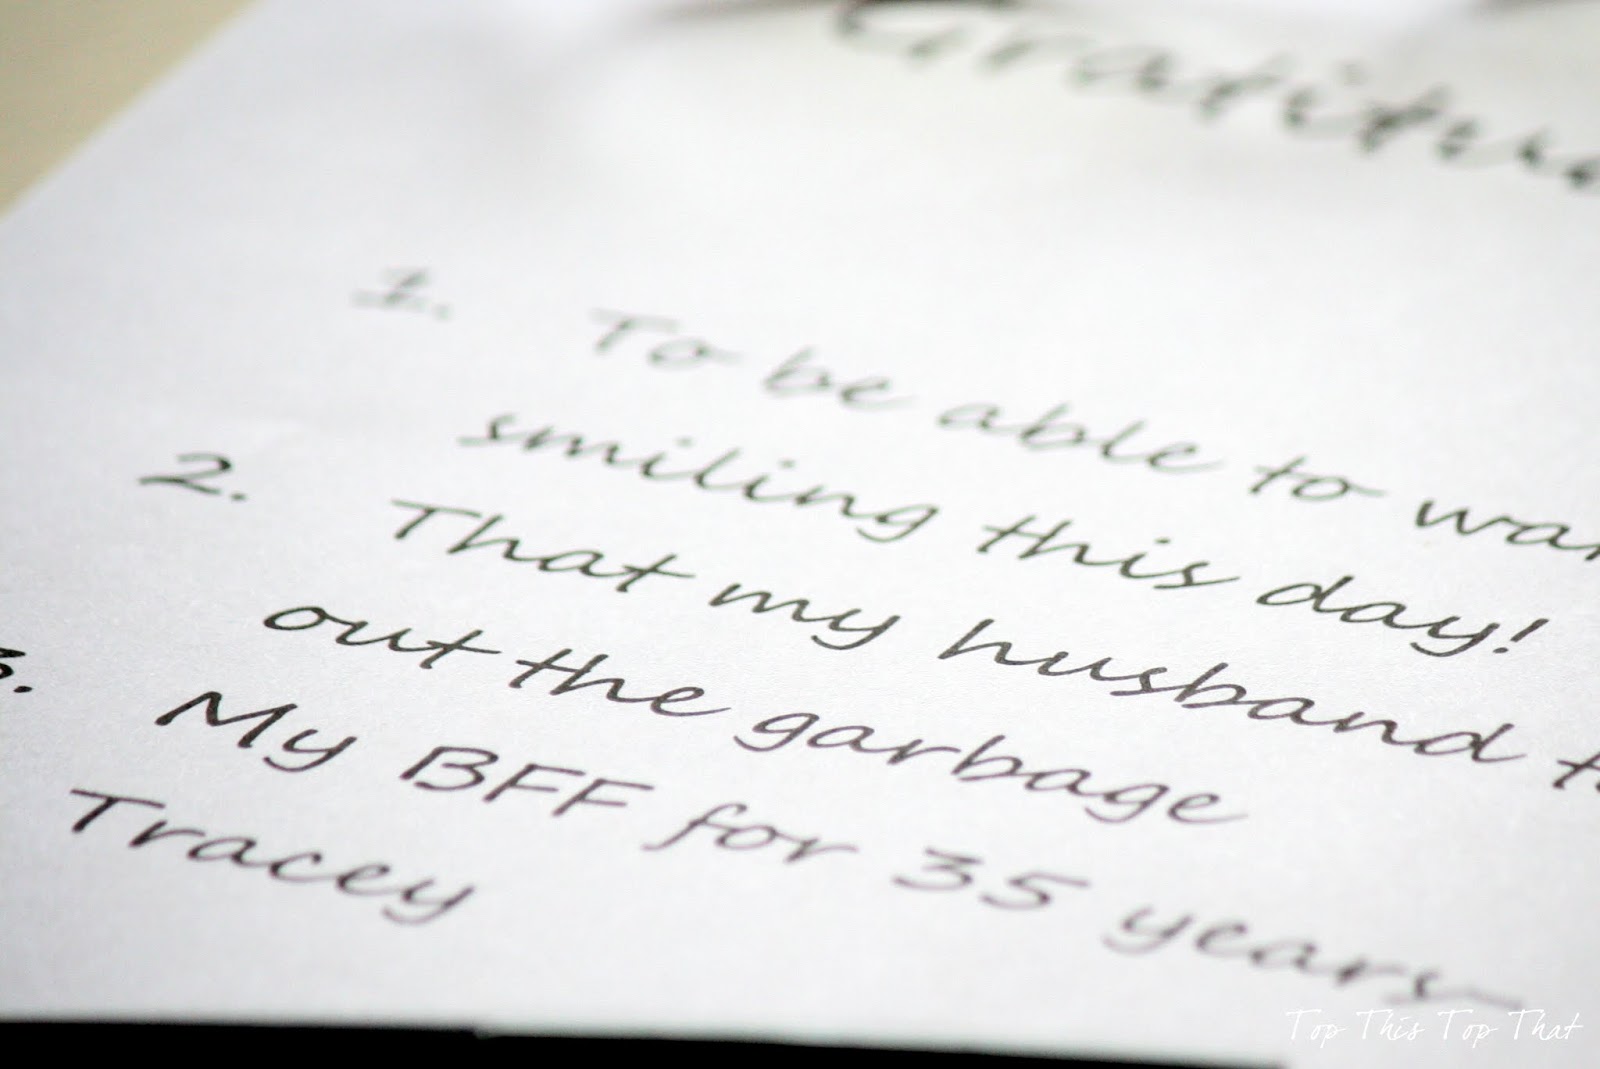 Gratitu
1. To be able to wa
smiling this day!
2. That my husband t
out the garbage
3. My BFF for 35 years-
Tracey
Top This Top That